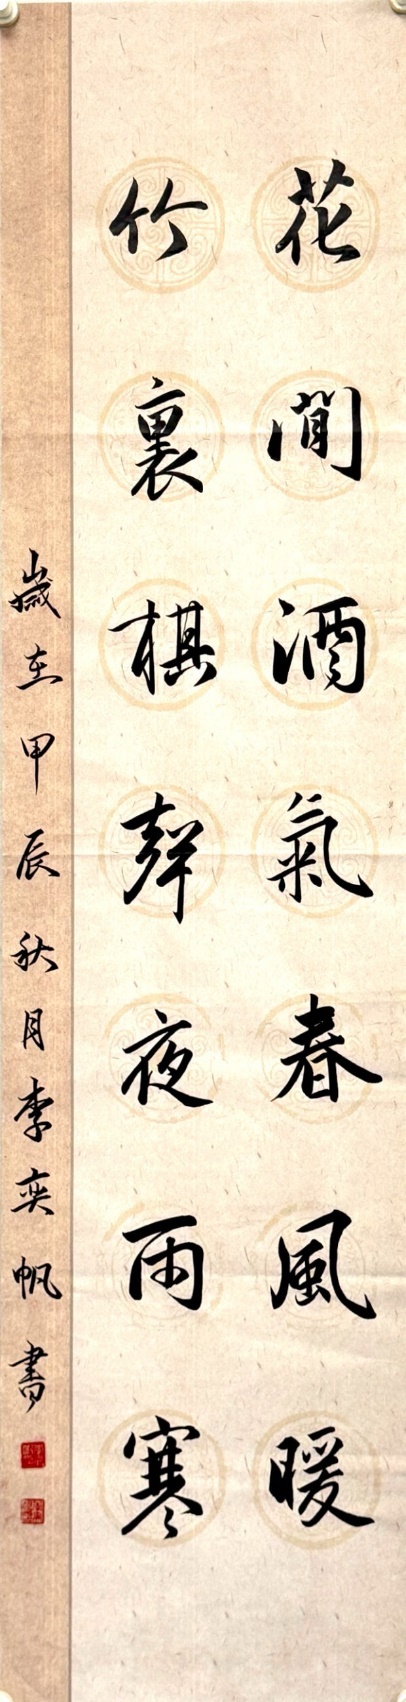 花間酒氣春風暖
竹裏棋聲夜雨寒
歲在甲辰秋月李奕帆書